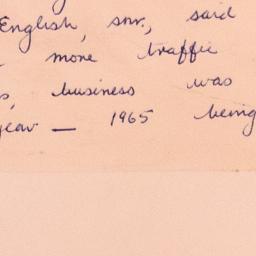 English, snr., said
more traffic
s, business was
year — 1965 being